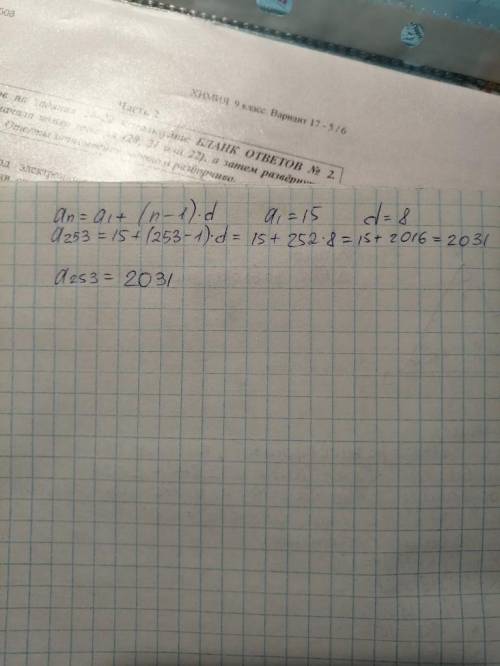 боа
ХИМИЯ. 9 класс. Вариант 17 - 5 / 6
Часть 2
БЛАНК ОТВЕТОВ № 2.
(20, 21 или 22), а затем развёрну
Ответы разборчиво.
an = a1 + (n-1)·d a1 = 15 d = 8
a253 = 15 + (253-1)·d = 15 + 252·8 = 15 + 2016 = 2031
a253 = 2031